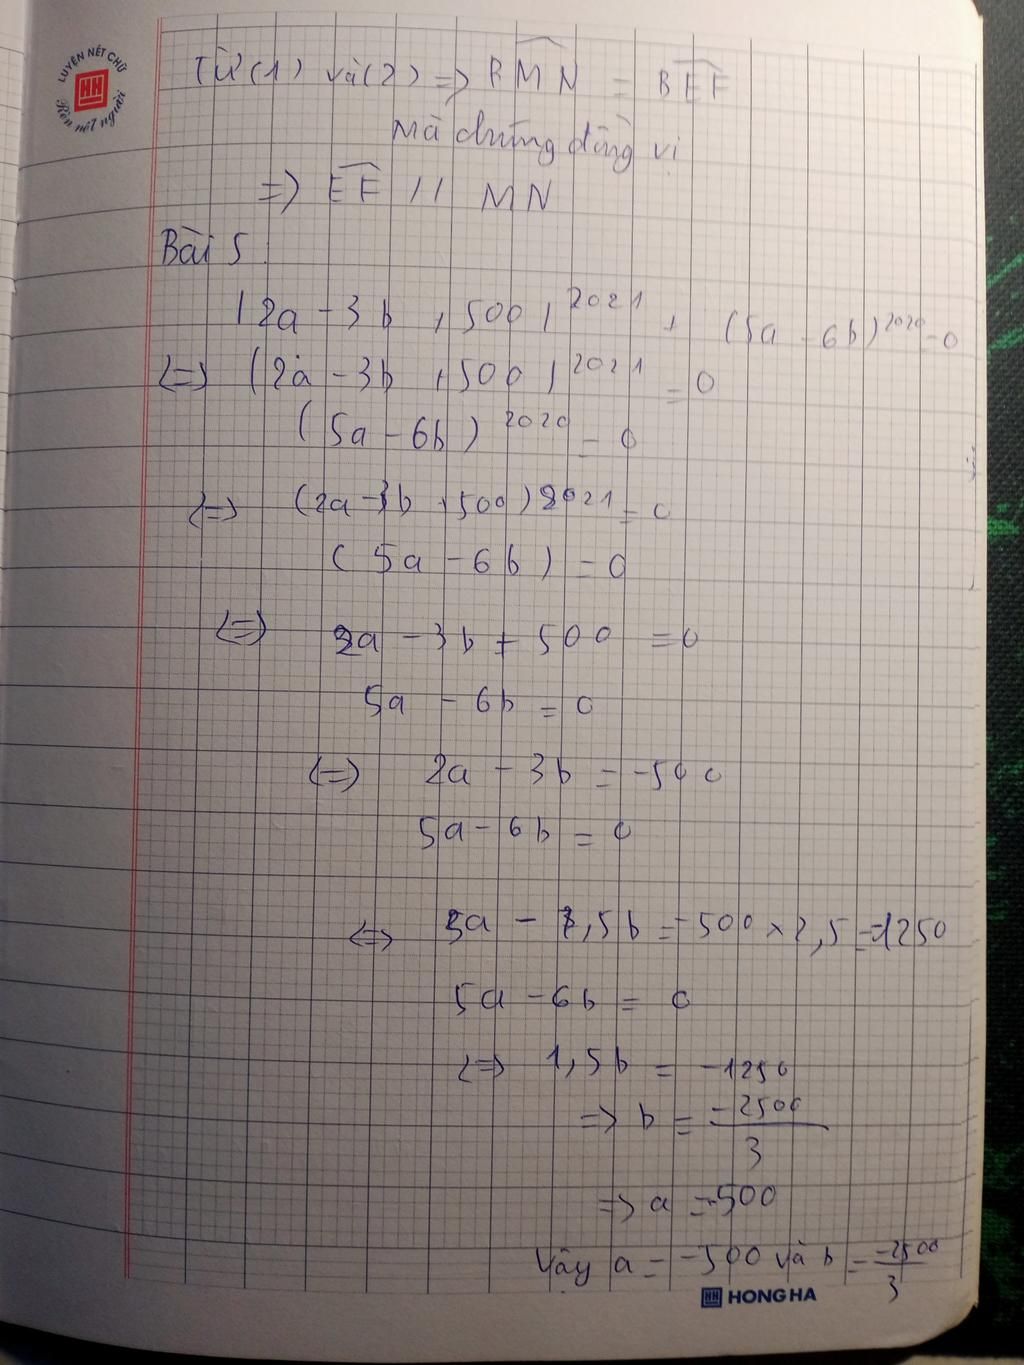 LUYỆN NÉT CHỮ
HH
Rèn nết người
Từ (1) và (2) => BMN = BEF
Mà chúng đồng vị
=> EF // MN
Bài 5
|2a - 3b + 500|^2021 + (5a - 6b)^2020 = 0
<=> (2a - 3b + 500)^2021 = 0
(5a - 6b)^2020 = 0
<=> (2a - 3b + 500)2021 = 0
(5a - 6b) = 0
<=> 2a - 3b + 500 = 0
5a - 6b = 0
<=> 2a - 3b = -500
5a - 6b = 0
<=> 5a - 7,5b = -500 × 2,5 = -1250
5a - 6b = 0
<=> 1,5b = -1250
=> b = -2500/3
=> a = -500
Vậy a = -500 và b = -2500/3
HH HONG HA